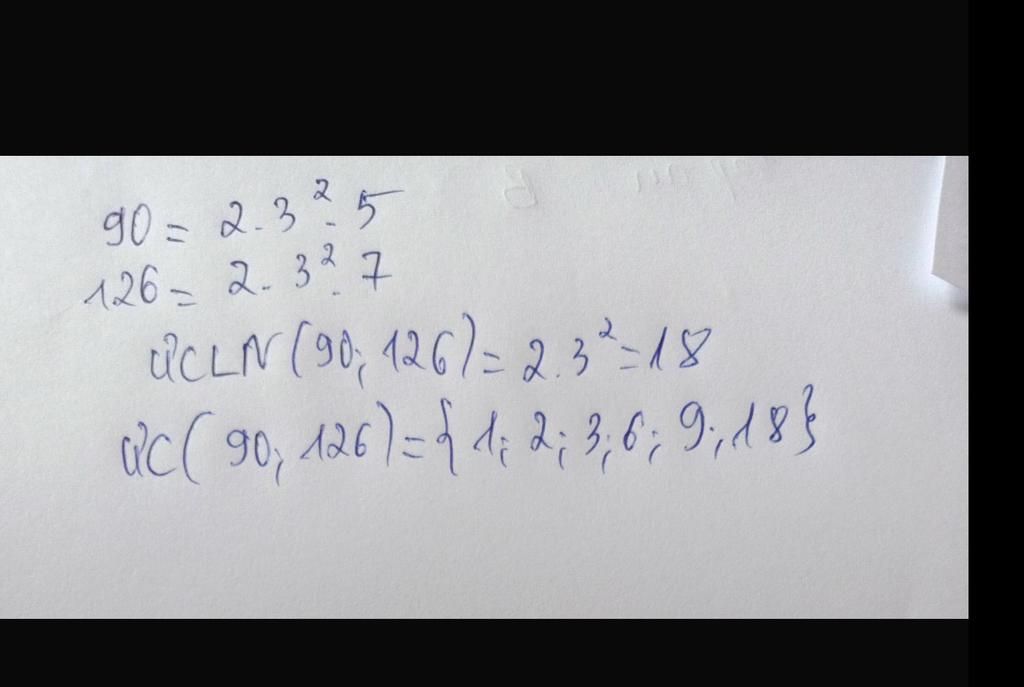 90 = 2.3².5
126 = 2.3².7
ƯCLN(90; 126) = 2.3² = 18
ƯC(90; 126) = {1; 2; 3; 6; 9; 18}